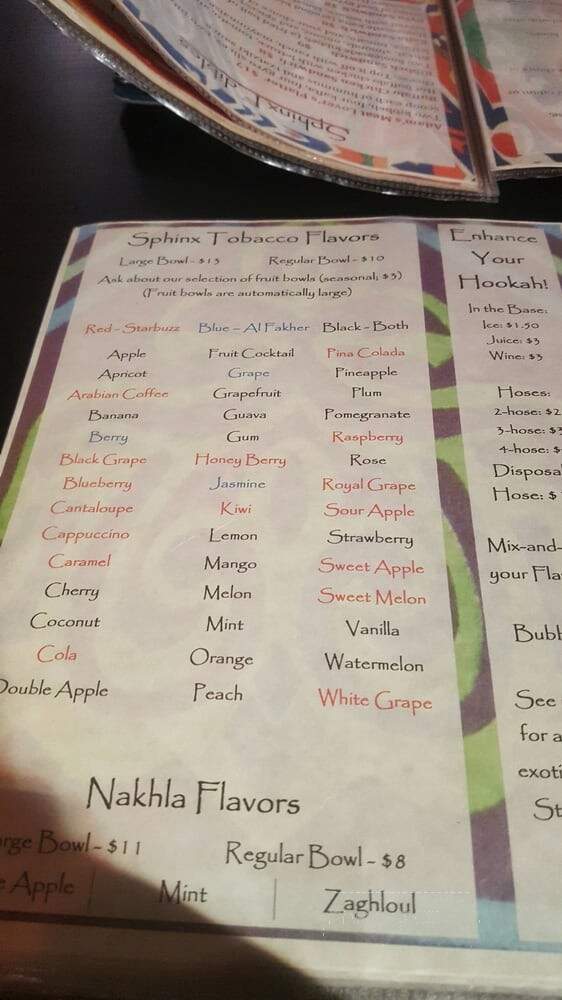 Sphinx
Adam's Meat Lover's Platter
Sphinx Tobacco Flavors
Large Bowl - $13 Regular Bowl - $10
Ask about our selection of fruit bowls (seasonal; $3)
(Fruit bowls are automatically large)
Red - Starbuzz Blue - Al Fakher Black - Both
Apple Fruit Cocktail Pina Colada
Apricot Grape Pineapple
Arabian Coffee Grapefruit Plum
Banana Guava Pomegranate
Berry Gum Raspberry
Black Grape Honey Berry Rose
Blueberry Jasmine Royal Grape
Cantaloupe Kiwi Sour Apple
Cappuccino Lemon Strawberry
Caramel Mango Sweet Apple
Cherry Melon Sweet Melon
Coconut Mint Vanilla
Cola Orange Watermelon
Double Apple Peach White Grape
Nakhla Flavors
arge Bowl - $11 Regular Bowl - $8
e Apple Mint Zaghloul
Enhance
Your
Hookah!
In the Base:
Ice: $1.50
Juice: $3
Wine: $3
Hoses:
2-hose: $2
3-hose: $3
4-hose: $
Disposa
Hose: $
Mix-and-
your Fla
Bubb
See
for a
exoti
St